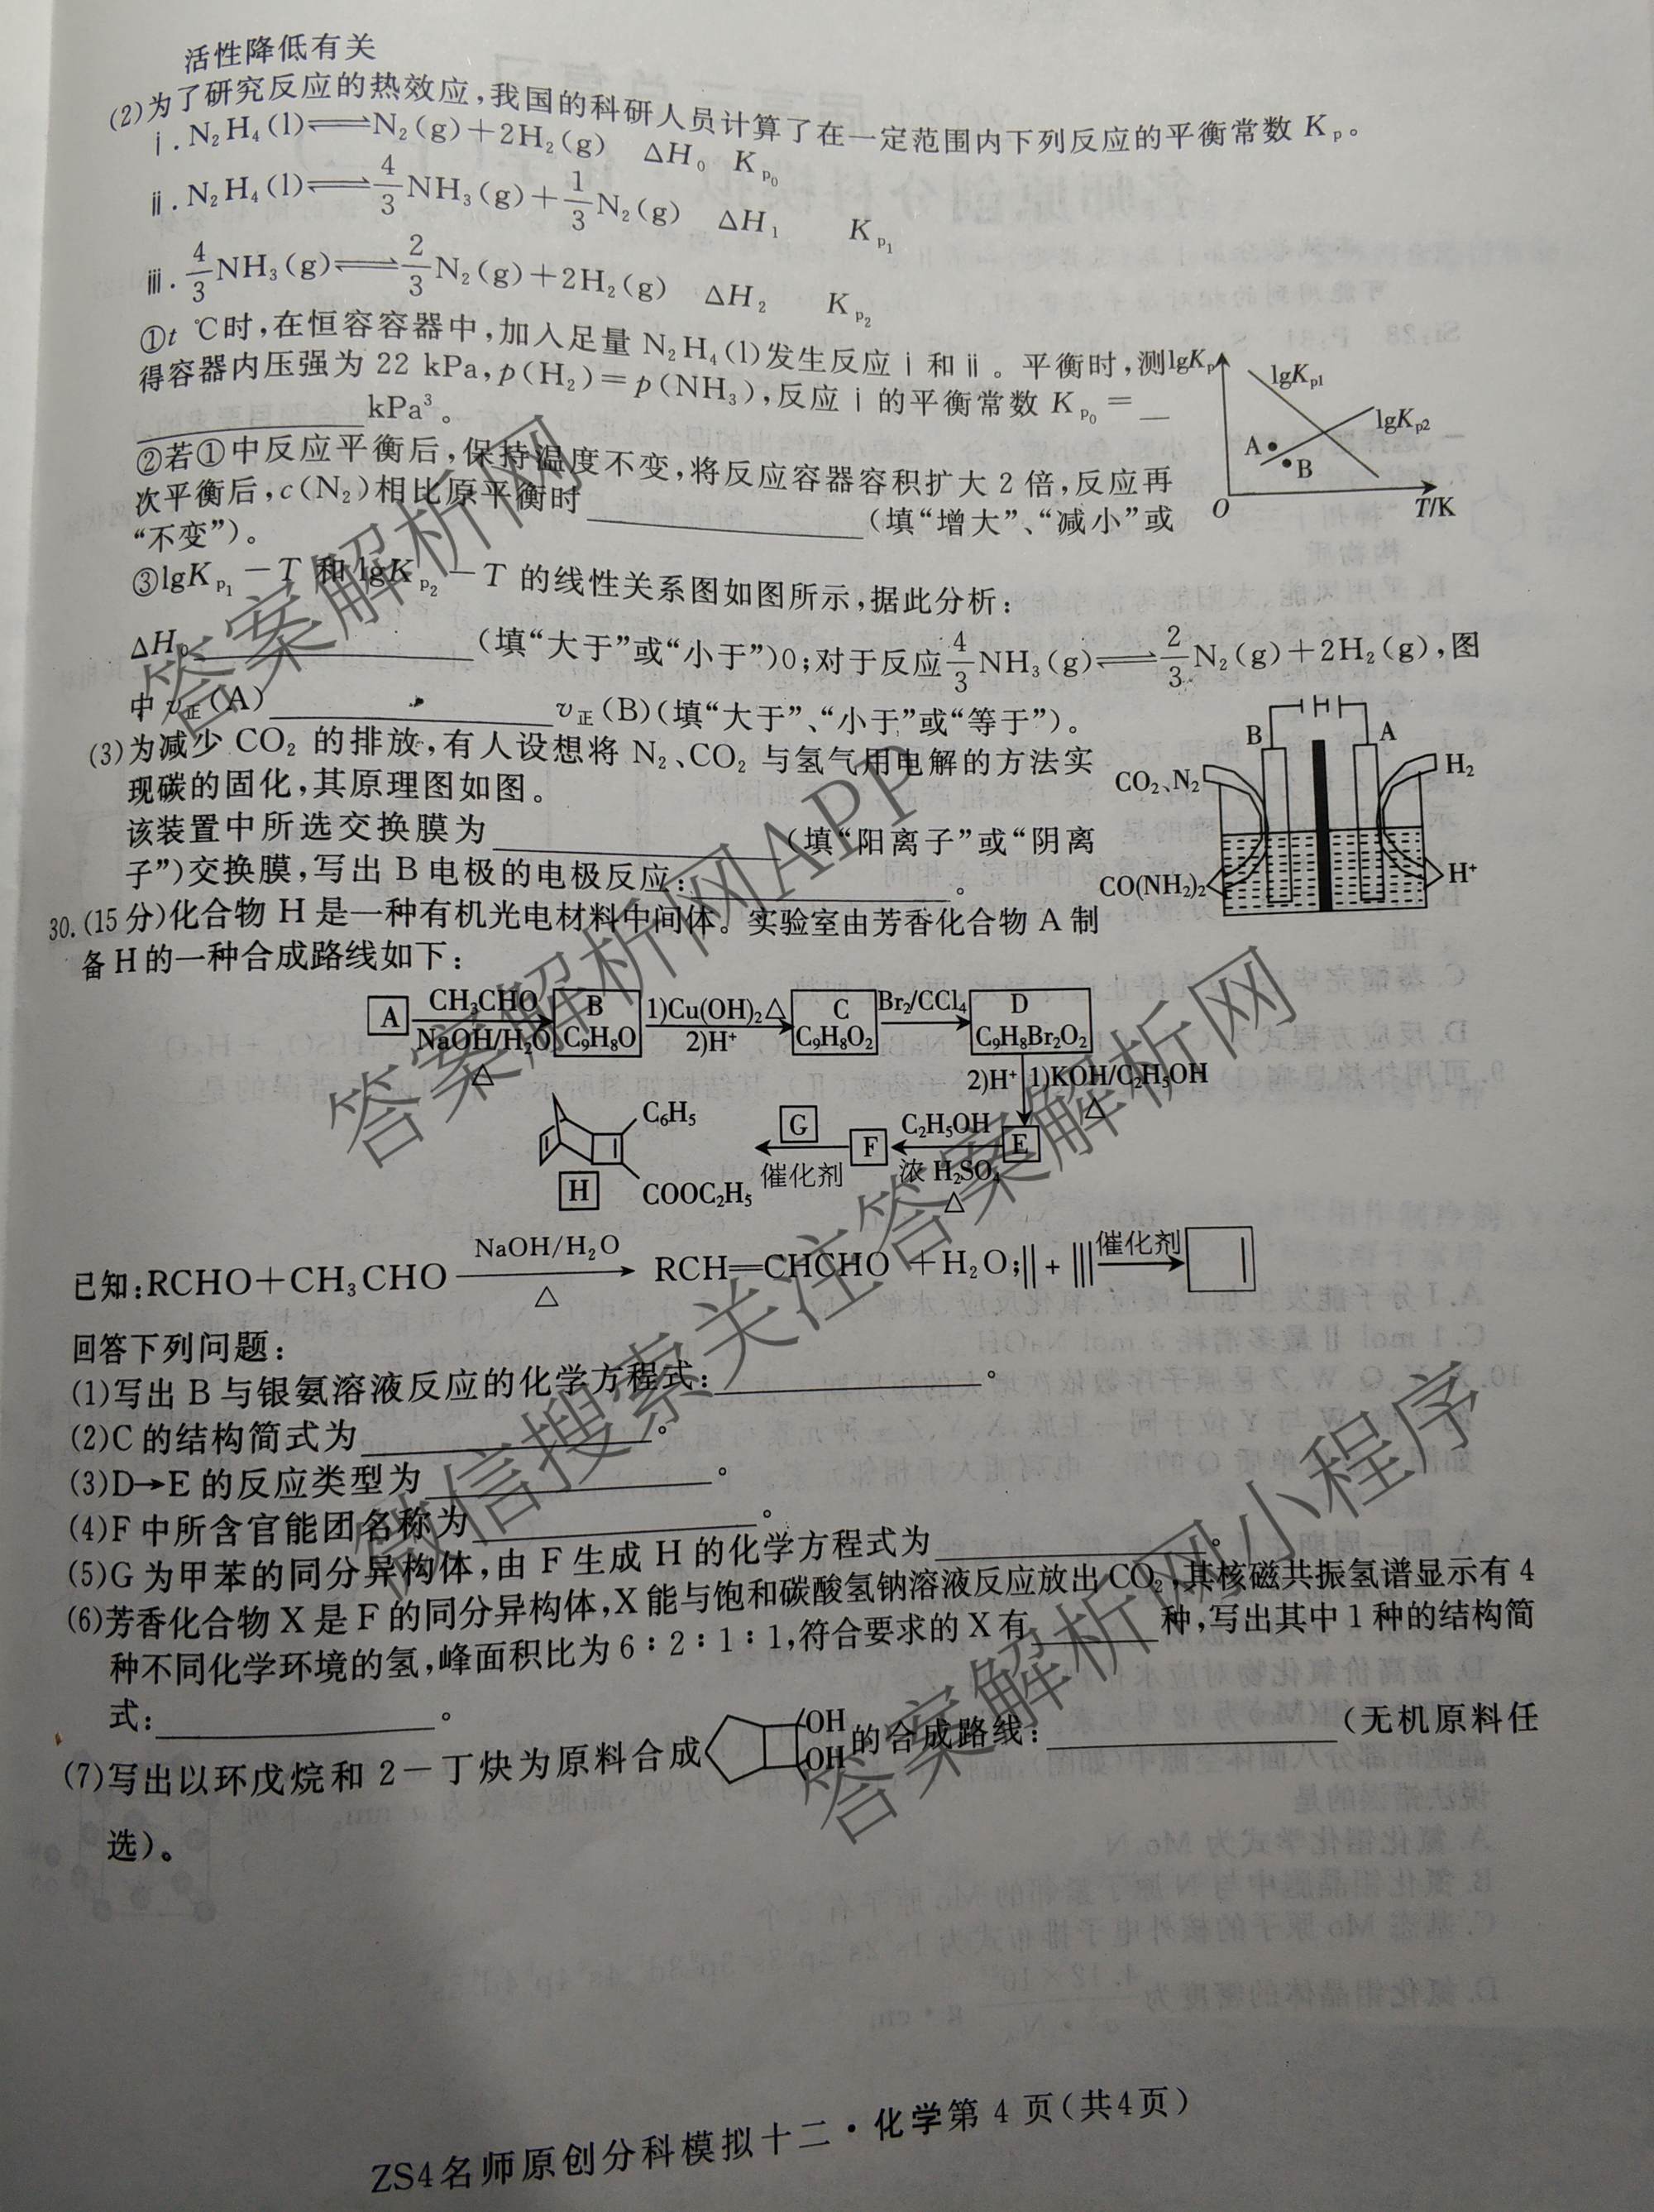 活性降低有关
(2)为了研究反应的热效应,我国的科研人员计算了在一定范围内下列反应的平衡常数 Kₚ。
ⅰ. N₂H₄(l)⇌N₂(g)+2H₂(g) ΔH₀ Kₚ₀
ⅱ. N₂H₄(l)⇌4/3NH₃(g)+1/3N₂(g) ΔH₁ Kₚ₁
ⅲ. 4/3NH₃(g)⇌2/3N₂(g)+2H₂(g) ΔH₂ Kₚ₂
①t ℃时,在恒容容器中,加入足量 N₂H₄(l)发生反应ⅰ和ⅱ。平衡时,测
得容器内压强为 22 kPa,p(H₂)=p(NH₃),反应ⅰ的平衡常数 Kₚ₀=__
____________kPa³。
lgKₚ
lgKₚ₁
lgKₚ₂
A
B
O
T/K
②若①中反应平衡后,保持温度不变,将反应容器容积扩大 2 倍,反应再
次平衡后,c(N₂)相比原平衡时______________(填“增大”、“减小”或
“不变”)。
③lgKₚ₁-T 和 lgKₚ₂-T 的线性关系图如图所示,据此分析:
ΔH₀______________(填“大于”或“小于”)0;对于反应4/3NH₃(g)⇌2/3N₂(g)+2H₂(g),图
中 v正(A)______________v正(B)(填“大于”、“小于”或“等于”)。
(3)为减少 CO₂ 的排放,有人设想将 N₂、CO₂ 与氢气用电解的方法实
现碳的固化,其原理图如图。
该装置中所选交换膜为______________(填“阳离子”或“阴离
子”)交换膜,写出 B 电极的电极反应:______________。
B
A
CO₂、N₂
H₂
CO(NH₂)₂
H⁺
30.(15分)化合物 H 是一种有机光电材料中间体。实验室由芳香化合物 A 制
备 H 的一种合成路线如下:
A CH₃CHO NaOH/H₂O △ B C₉H₈O 1)Cu(OH)₂△ 2)H⁺ C C₉H₈O₂ Br₂/CCl₄ D C₉H₈Br₂O₂
2)H⁺ 1)KOH/C₂H₅OH △
C₆H₅ COOC₂H₅ H G 催化剂 F C₂H₅OH 浓 H₂SO₄ △ E
已知:RCHO+CH₃CHO NaOH/H₂O △ RCH=CHCHO +H₂O; + 催化剂
回答下列问题:
(1)写出 B 与银氨溶液反应的化学方程式:______________。
(2)C 的结构简式为______________。
(3)D→E 的反应类型为______________。
(4)F 中所含官能团名称为______________。
(5)G 为甲苯的同分异构体,由 F 生成 H 的化学方程式为______________。
(6)芳香化合物 X 是 F 的同分异构体,X 能与饱和碳酸氢钠溶液反应放出 CO₂,其核磁共振氢谱显示有 4
种不同化学环境的氢,峰面积比为 6∶2∶1∶1,符合要求的 X 有______种,写出其中 1 种的结构简
式:______________。
(7)写出以环戊烷和 2-丁炔为原料合成 OH OH 的合成路线:______________(无机原料任
选)。
ZS4名师原创分科模拟十二·化学第 4 页(共4页)
答案解析网
答案解析网APP
微信搜索关注答案解析网
答案解析网小程序